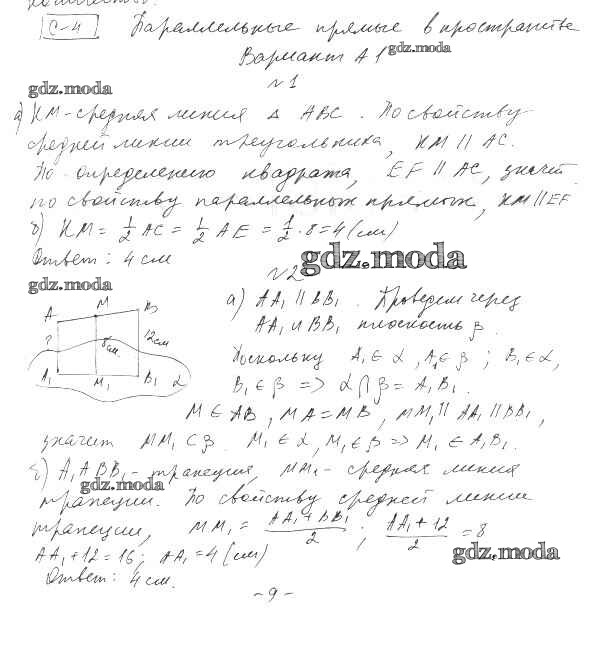 С-4 Параллельные прямые в пространстве
Вариант А1
gdz.moda
№1
gdz.moda
а) КМ-средняя линия Δ ABC. По свойству
средней линии треугольника, КМ || АС.
По определению квадрата, EF || AC, значит
по свойству параллельных прямых, КМ || EF
б) КМ = 1/2 AC = 1/2 AE = 1/2 · 8 = 4 (см)
Ответ: 4 см
gdz.moda
№2
gdz.moda
A M B
? 8см. 12см
A₁ M₁ B₁ α
а) AA₁ || BB₁. Проведем через
AA₁ и BB₁ плоскость β.
Поскольку A₁ ∈ α, A₁ ∈ β; B₁ ∈ α,
B₁ ∈ β => α ∩ β = A₁B₁.
M ∈ AB, MA = MB, MM₁ || AA₁ || BB₁,
значит MM₁ ⊂ β. M₁ ∈ α, M₁ ∈ β => M₁ ∈ A₁B₁.
б) A₁ABB₁ - трапеция, MM₁ - средняя линия
gdz.moda
трапеции. По свойству средней линии
трапеции, MM₁ = (AA₁ + BB₁)/2 ; (AA₁ + 12)/2 = 8
AA₁ + 12 = 16; AA₁ = 4 (см)
gdz.moda
Ответ: 4 см.
- 9 -